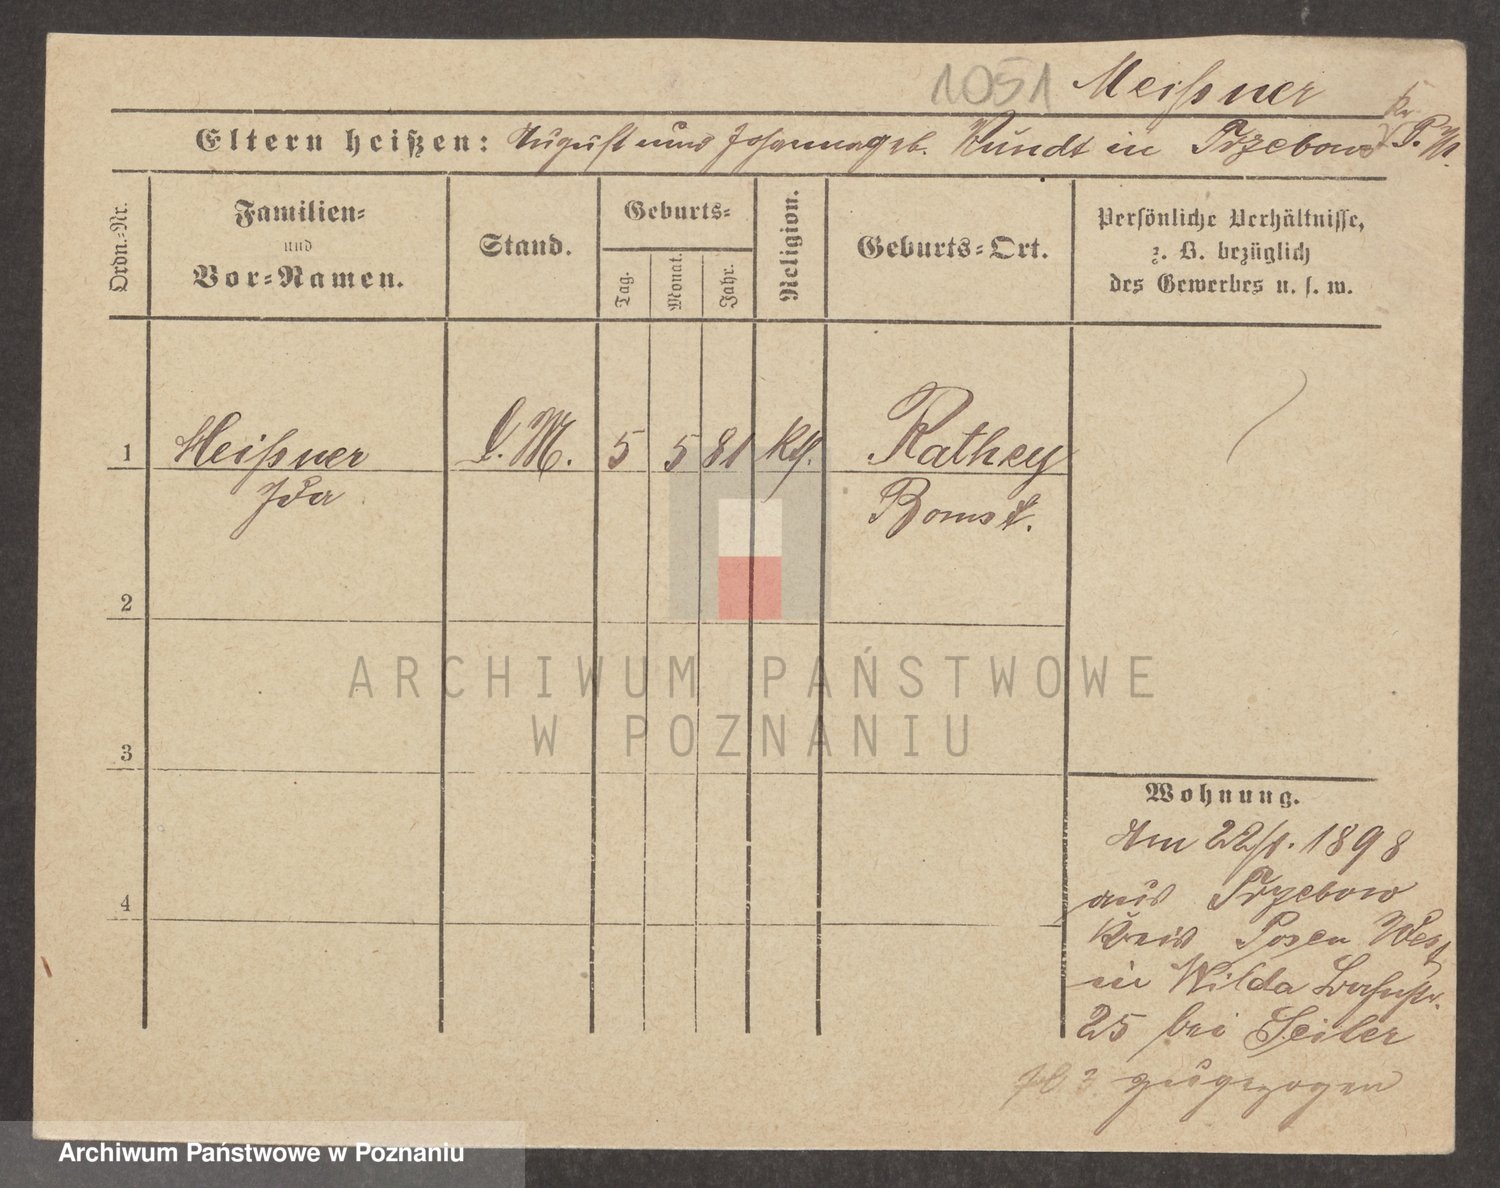 1051 Meißner
Eltern heißen: August und Johanna geb. Kundt in Przebowo Kr P. W.
Ordn.-Nr.
Familien-
und
Vor-Namen.
Stand.
Geburts-
Tag.
Monat.
Jahr.
Religion.
Geburts-Ort.
Persönliche Verhältnisse,
z. B. bezüglich
des Gewerbes u. s. w.
1 Meißner D. M. 5 5 81 kth. Rathey
Ida Bomst.
2
3
4
ARCHIWUM PAŃSTWOWE
W POZNANIU
Wohnung.
Am 22/1. 1898
aus Przebowo
Kreis Posen West
in Wilda
25 bei Seiler
zugezogen
Archiwum Państwowe w Poznaniu